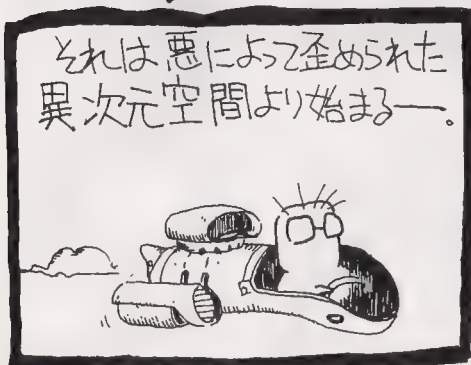 それは悪によって歪められた
異次元空間より始まる―。